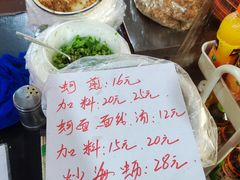 蚵煎:16元
加料:20元.25元
蚵面 面线.汤:12元
加料:15元.20元
炒海蛎:28元